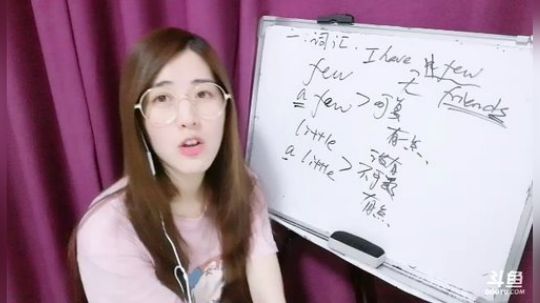 一.词汇. I have few
friends
few
a few > 可数
有一点
little 没有
a little > 不可数
有点
斗鱼
DOUYU.COM